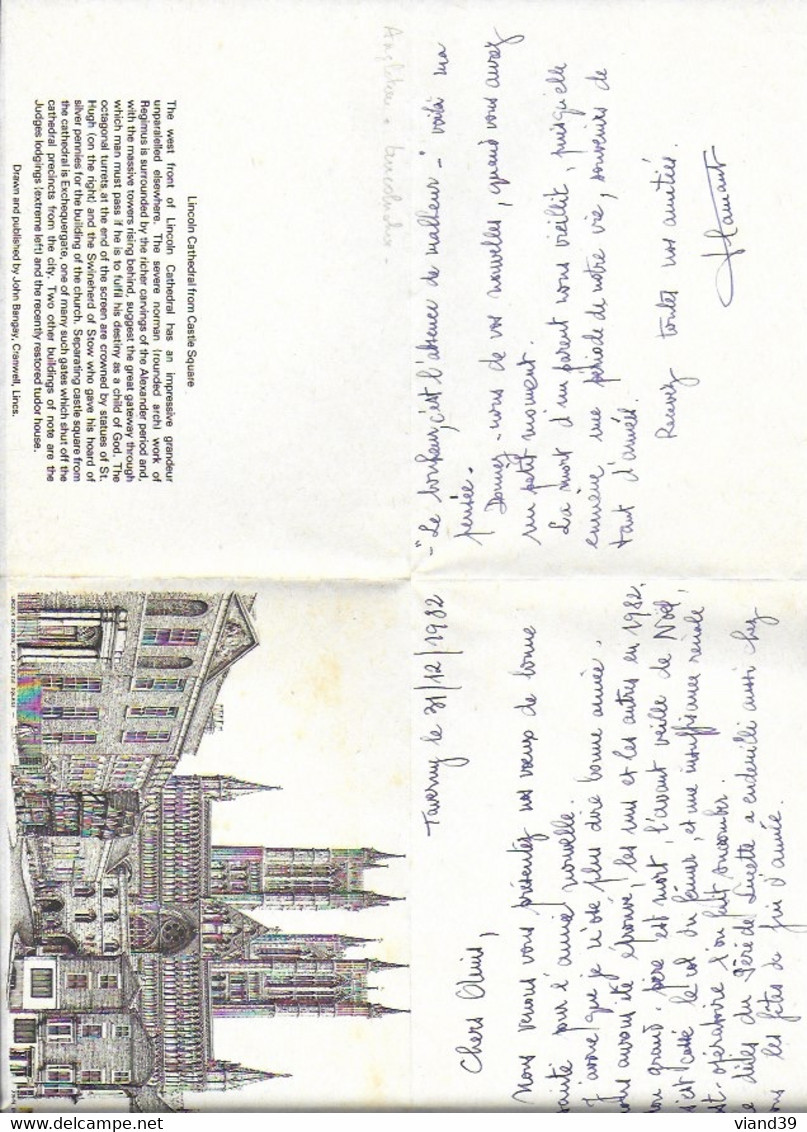 Lincoln Cathedral from Castle Square
The west front of Lincoln Cathedral has an impressive grandeur
unparalelled elsewhere. The severe norman (rounded arch) work of
Regimus is surrounded by the richer carvings of the Alexander period and,
with the massive towers rising behind, suggest the great gateway through
which man must pass if he is to fulfil his destiny as a child of God. The
octagonal turrets at the end of the screen are crowned by statues of St.
Hugh (on the right) and the Swineherd of Stow who gave his hoard of
silver pennies for the building of the church. Separating castle square from
the cathedral is Exchequergate, one of many such gates which shut off the
cathedral precincts from the city. Two other buildings of note are the
Judges lodgings (extreme left) and the recently restored tudor house.
Drawn and published by John Bangay, Cranwell, Lincs.
LINCOLN CATHEDRAL FROM CASTLE SQUARE
Taverny le 31/12/1982
Chers Amis,
Nous venons vous présenter nos vœux de bonne
santé pour l'année nouvelle.
J'avoue que je n'ose plus dire bonne année.
nous avons été éprouvé, les uns et les autres en 1982.
mon grand-père est mort, l'avant veille de Noël,
s'est cassé le col du fémur, et une insuffisance rénale
post-opératoire l'on fait succomber.
le décès du Père de Lucette a endeuilli aussi chez
les fêtes de fin d'année.
-"Le bonheur, c'est l'absence de malheur-" voilà ma
pensée.
Donnez-nous de vos nouvelles, quand vous aurez
un petit moment.
La mort d'un parent nous vieillit, puisqu'elle
enmène une période de notre vie, souvenirs de
tant d'années.
Recevez toutes nos amitiés.
Angleterre - Lincolnshire -
viand39